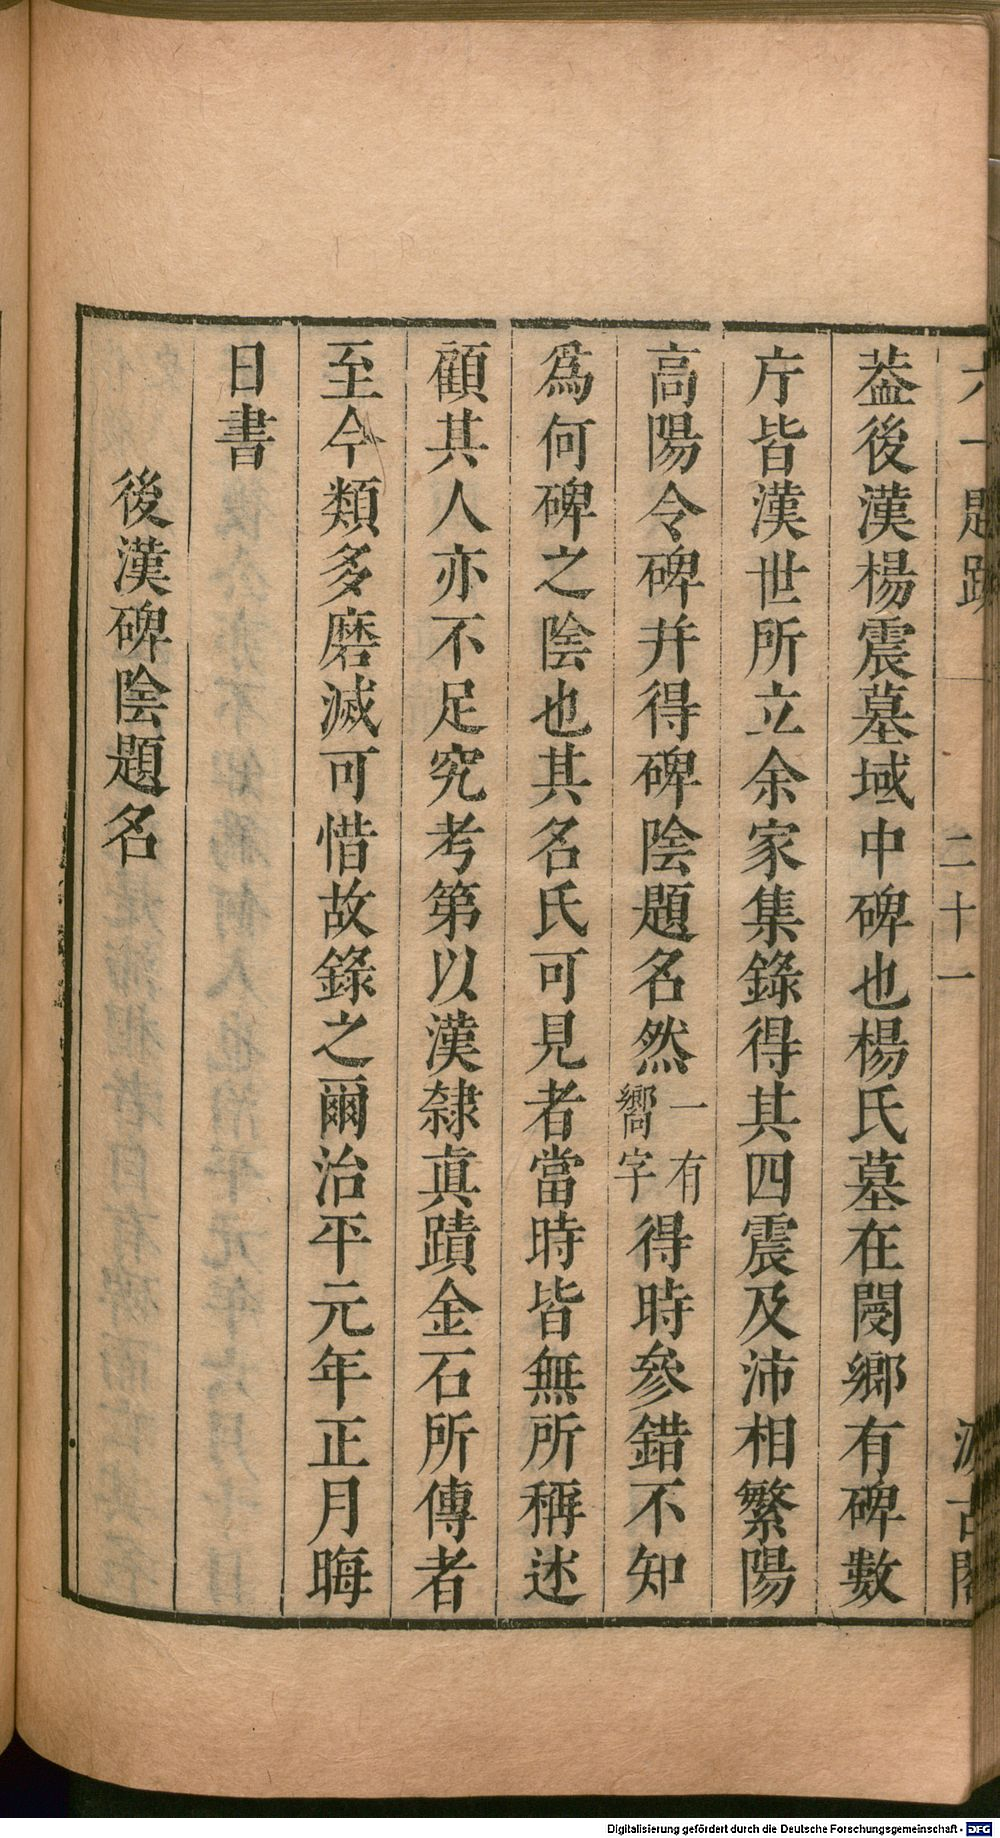 六一題跋 二十一 汲古閣
葢後漢楊震墓域中碑也楊氏墓在閿鄉有碑數
㡯皆漢世所立余家集錄得其四震及沛相繁陽
高陽令碑幷得碑陰題名然一有嚮字得時參錯不知
爲何碑之陰也其名氏可見者當時皆無所稱述
顧其人亦不足究考第以漢隸真蹟金石所傳者
至今類多磨滅可惜故錄之爾治平元年正月晦
日書
後漢碑陰題名
Digitalisierung gefördert durch die Deutsche Forschungsgemeinschaft - DFG